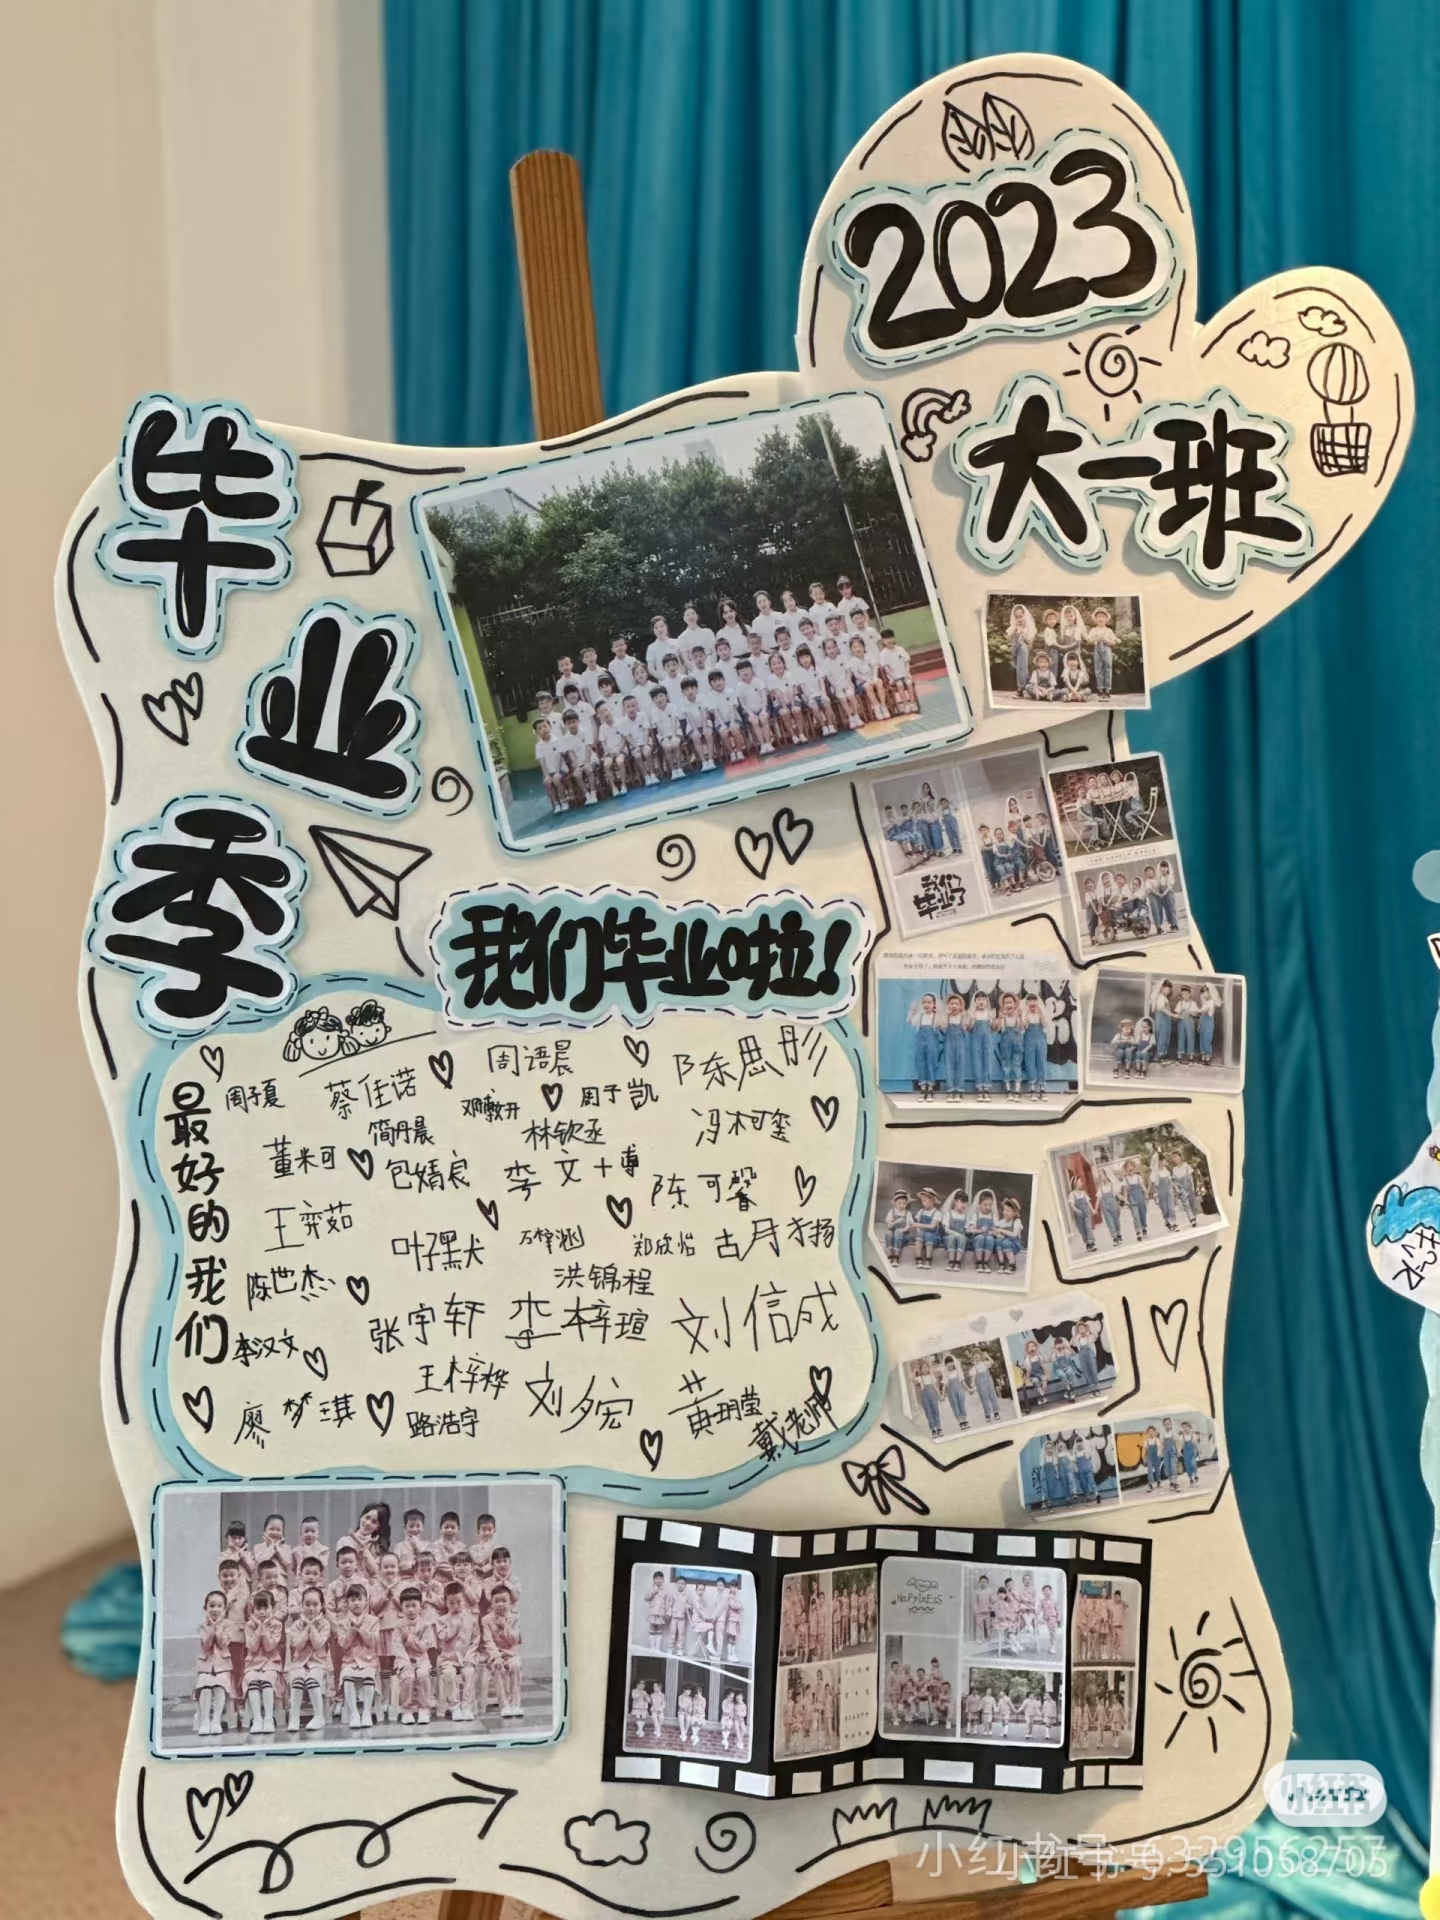 2023
大一班
毕业季
我们毕业啦!
我们
毕业了
最好的我们
周子夏
蔡佳诺
周语晨
陈思彤
简丹晨
邓敷开
周子凯
林钦丞
冯柯玺
董米可
包婧宸
李文十博
陈可馨
王弈茹
叶子默
万梓涵
郑欣怡
古月才扬
陈世杰
洪锦程
李汉文
张宇轩
李梓瑄
刘信成
王梓烨
廖梦琪
路浩宇
刘夕宏
黄玥莹
戴老师
HaPPyInESS
小红书